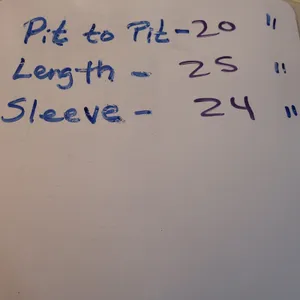 Pit to Pit - 20 "
Length - 25 "
Sleeve - 24 "